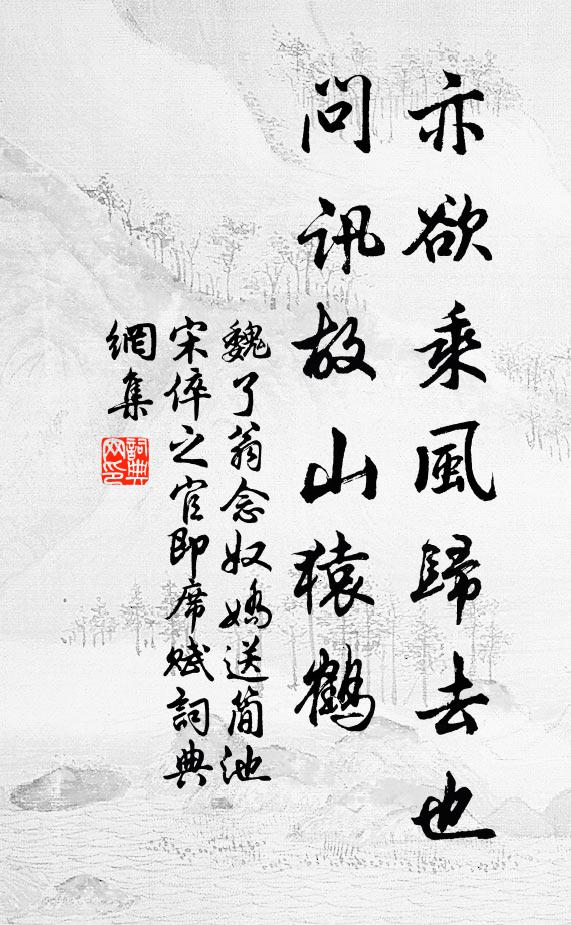 亦欲乘風歸去也
問訊故山猿鶴
魏了翁念奴嬌送簡池
宋倅之官即席賦詞典
網集
詞典網印